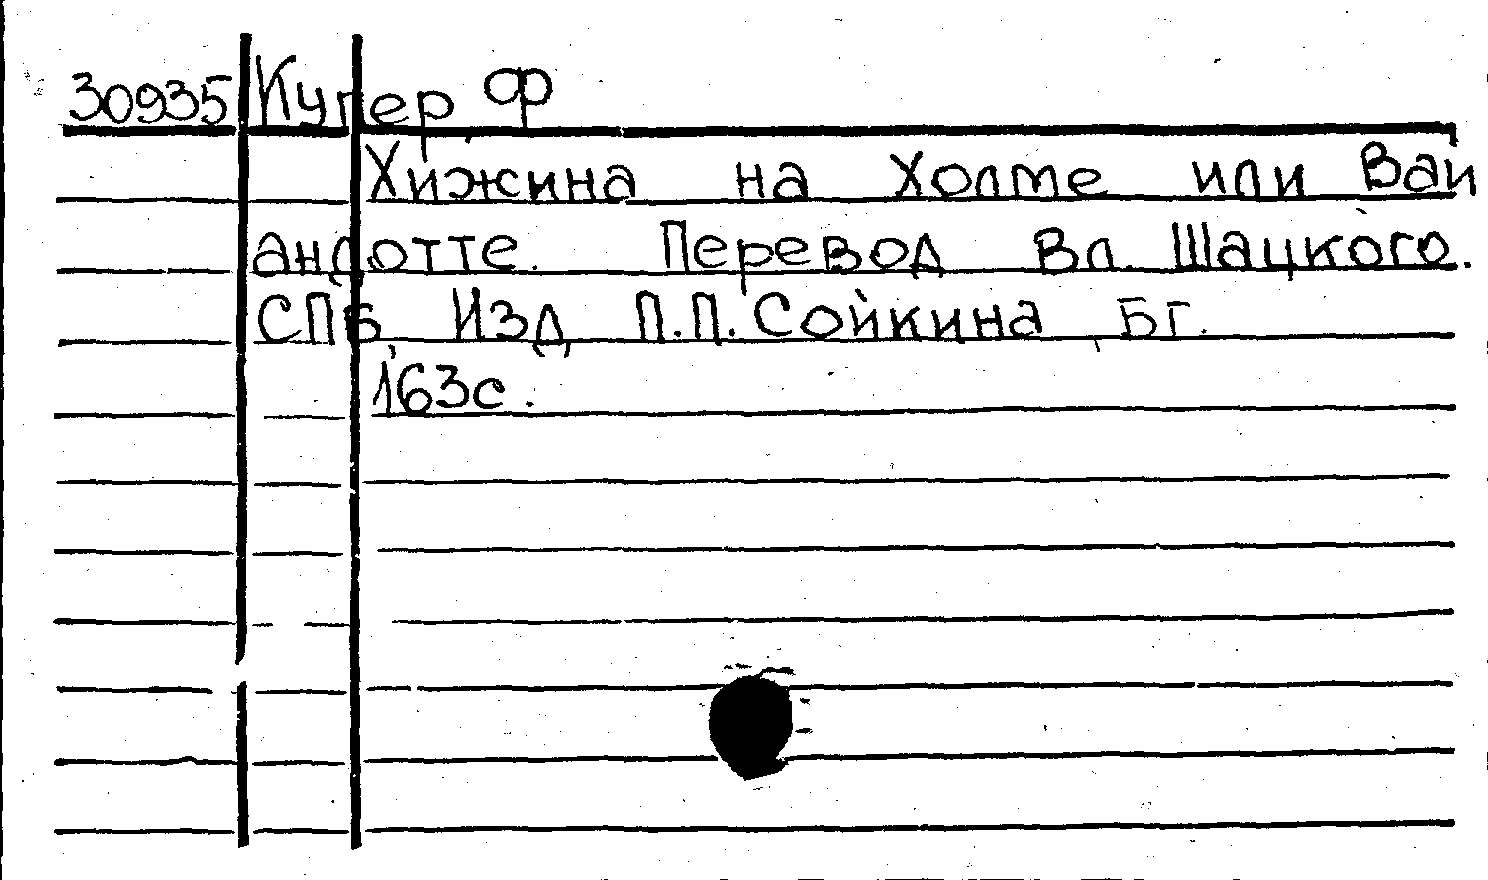 30935 Купер Ф
Хижина на Холме или Вай
андотте. Перевод Вл. Шацкого.
СПБ Изд П.П.Сойкина Бг.
163с.